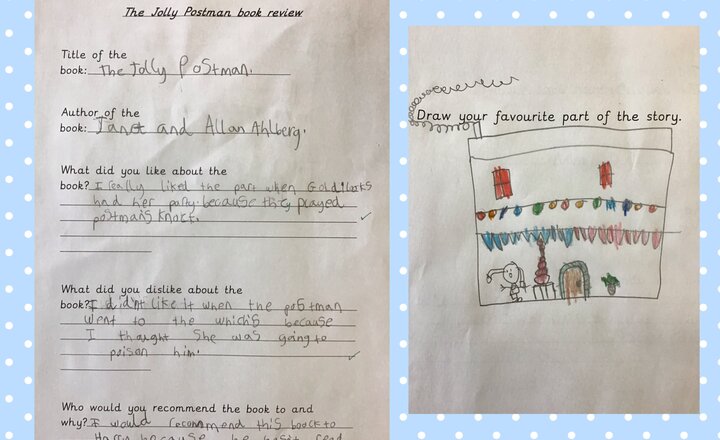 The Jolly Postman book review
Title of the
book: The Jolly Postman.
Author of the
book: Janet and Allan Ahlberg.
What did you like about the
book? I really liked the part when Goldilocks
had her party because they played
postmans knock.
What did you dislike about the
book? I didn't like it when the postman
went to the which's because
I thought she was going to
poison him.
Who would you recommend the book to and
why? I would recommend this boock to
Harry because he hasn't read
Draw your favourite part of the story.